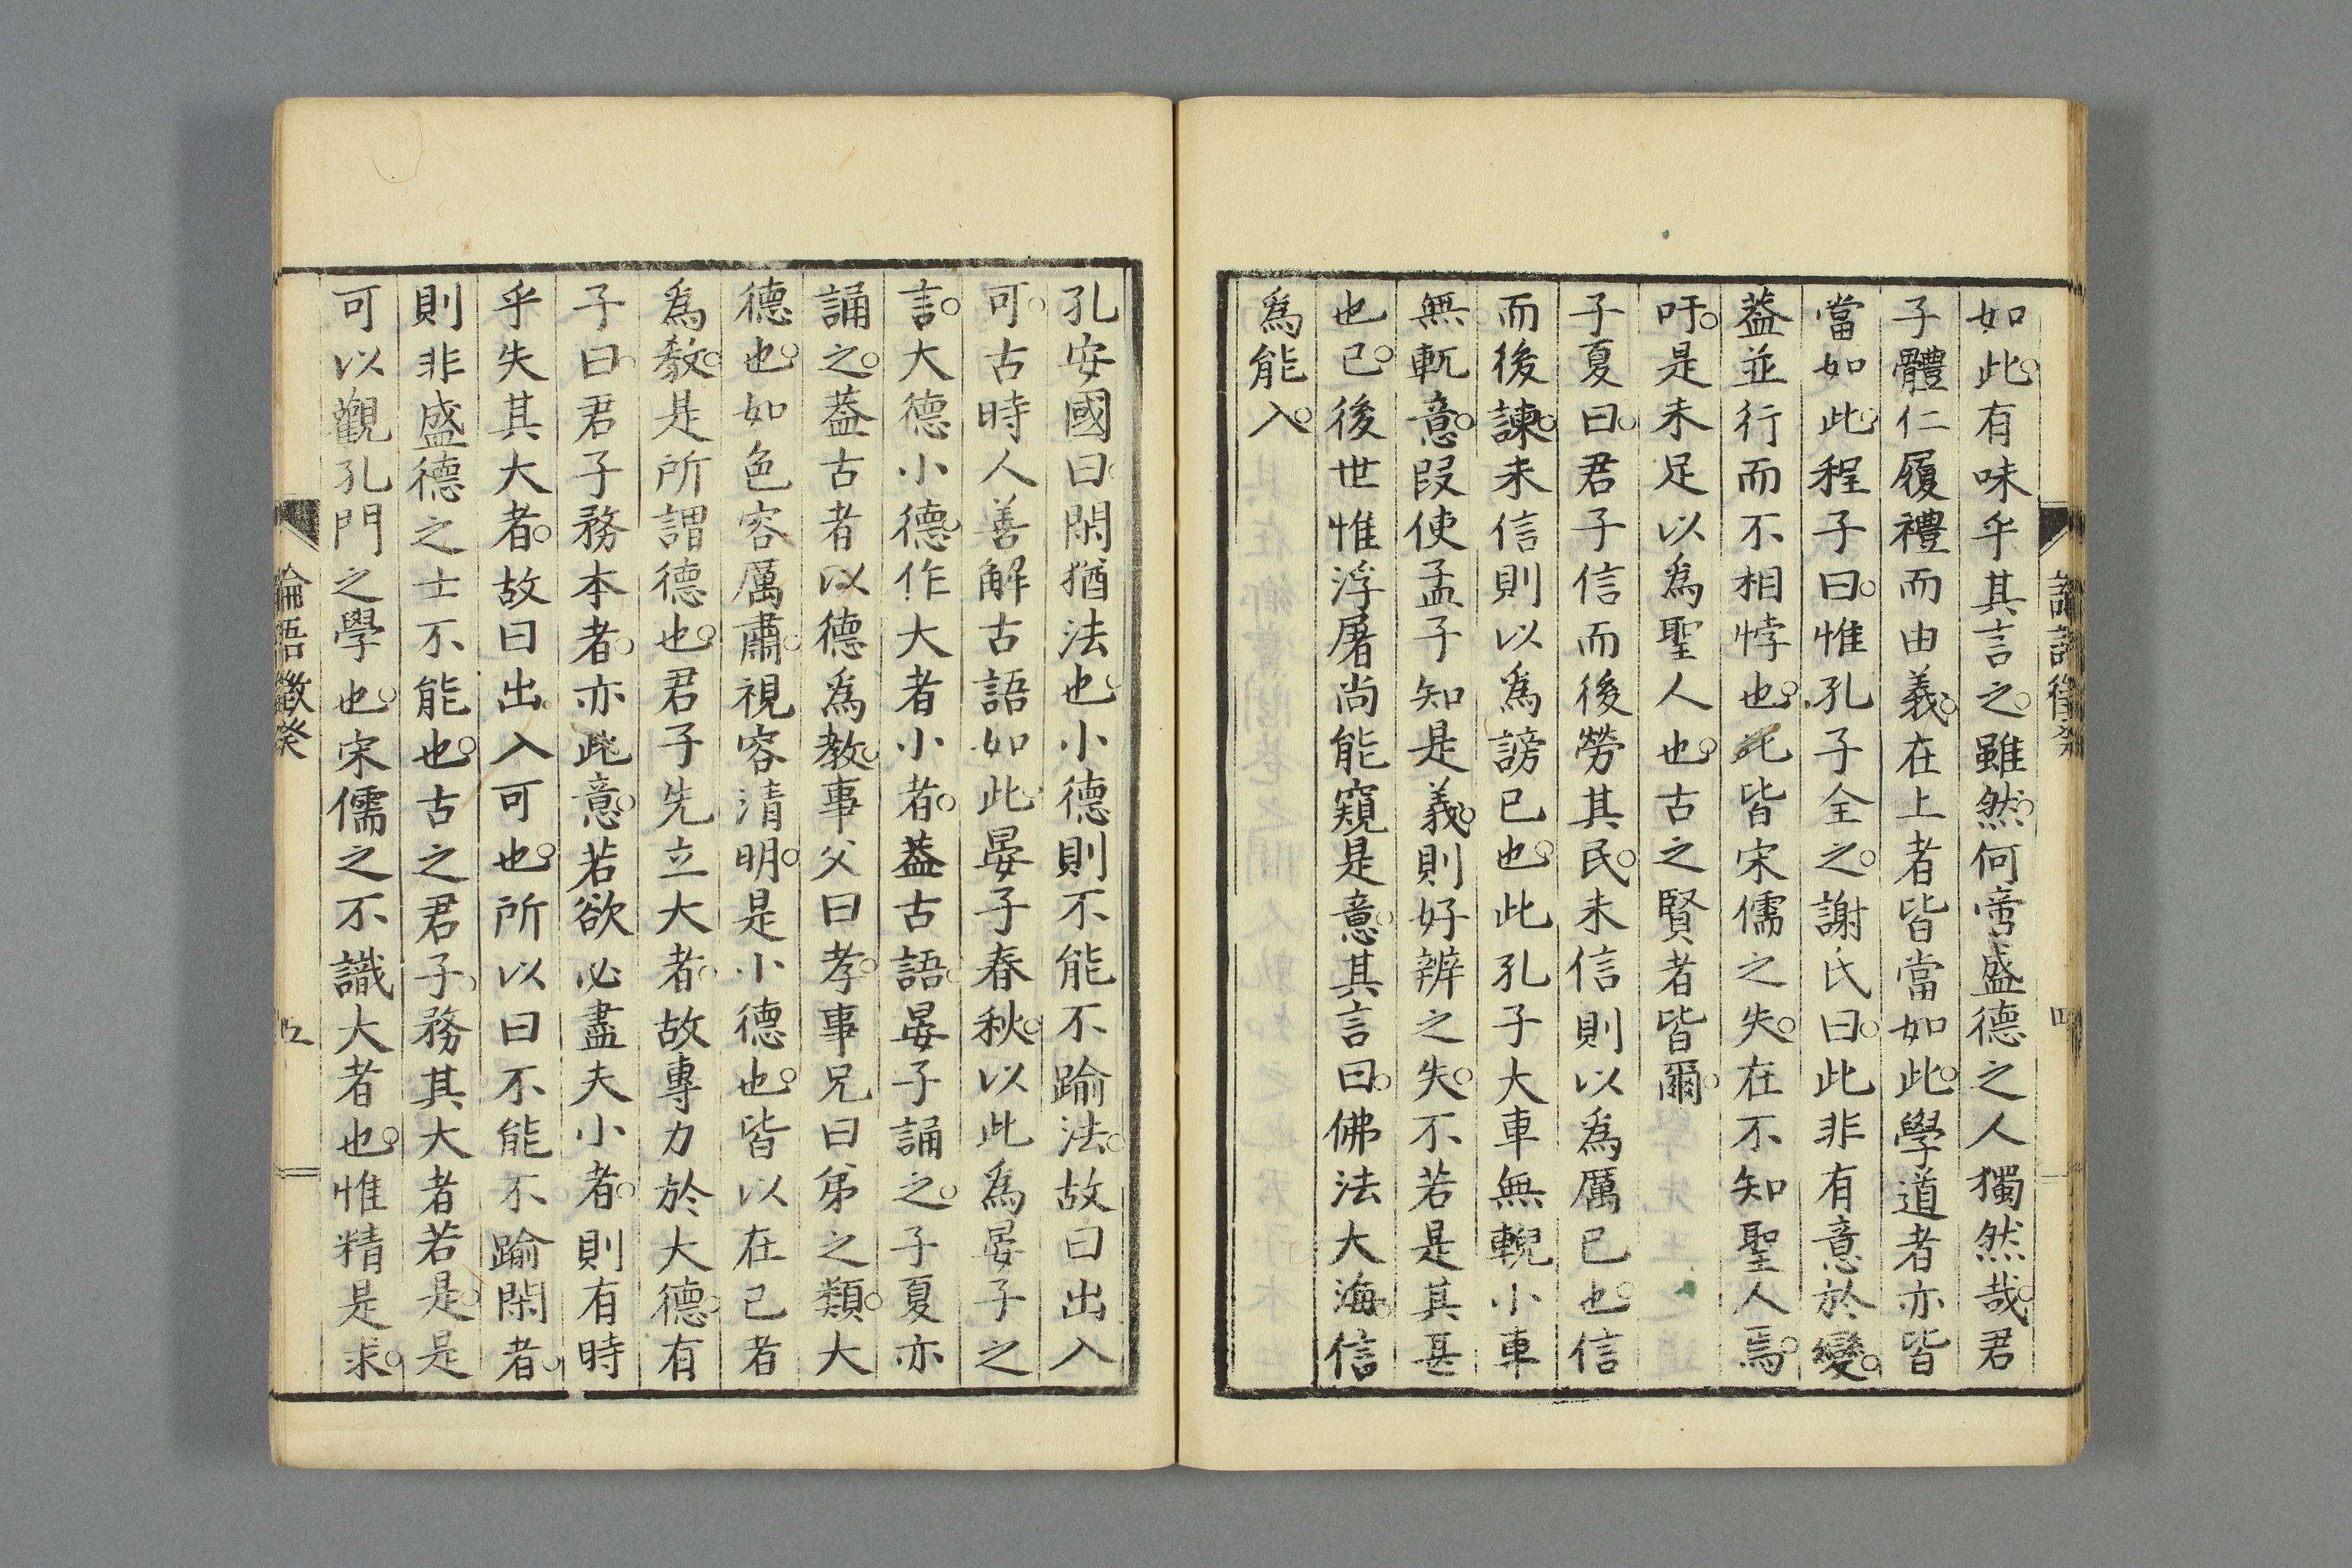 如此。有味乎其言之。雖然。何啻盛德之人獨然哉。君
子體仁履禮而由義。在上者皆當如此。學道者亦皆
當如此。程子曰。惟孔子全之。謝氏曰。此非有意於變。
葢並行而不相悖也。此皆宋儒之失。在不知聖人焉。
吁。是未足以爲聖人也。古之賢者皆爾。
子夏曰。君子信而後勞其民。未信則以爲厲己也。信
而後諫。未信則以爲謗己也。此孔子大車無輗小車
無軏意。叚使孟子知是義。則好辨之失。不若是其甚
也已。後世惟浮屠尚能窺是意。其言曰。佛法大海。信
爲能入。
四
孔安國曰。閑猶法也。小德則不能不踰法。故曰出入
可。古時人善解古語如此。晏子春秋。以此爲晏子之
言。大德小德。作大者小者。葢古語。晏子誦之。子夏亦
誦之。葢古者以德爲教。事父曰孝。事兄曰弟之類。大
德也。如色容厲肅。視容清明。是小德也。皆以在己者
爲教。是所謂德也。君子先立大者。故專力於大德。有
子曰。君子務本者。亦此意。若欲必盡夫小者。則有時
乎失其大者。故曰出入可也。所以曰不能不踰閑者。
則非盛德之士不能也。古之君子。務其大者若是。是
可以觀孔門之學也。宋儒之不識大者也。惟精是求。
論語徵癸